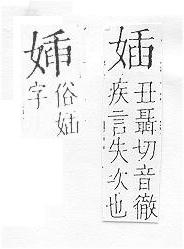 丑聶切音徹
疾言失次也
俗
字